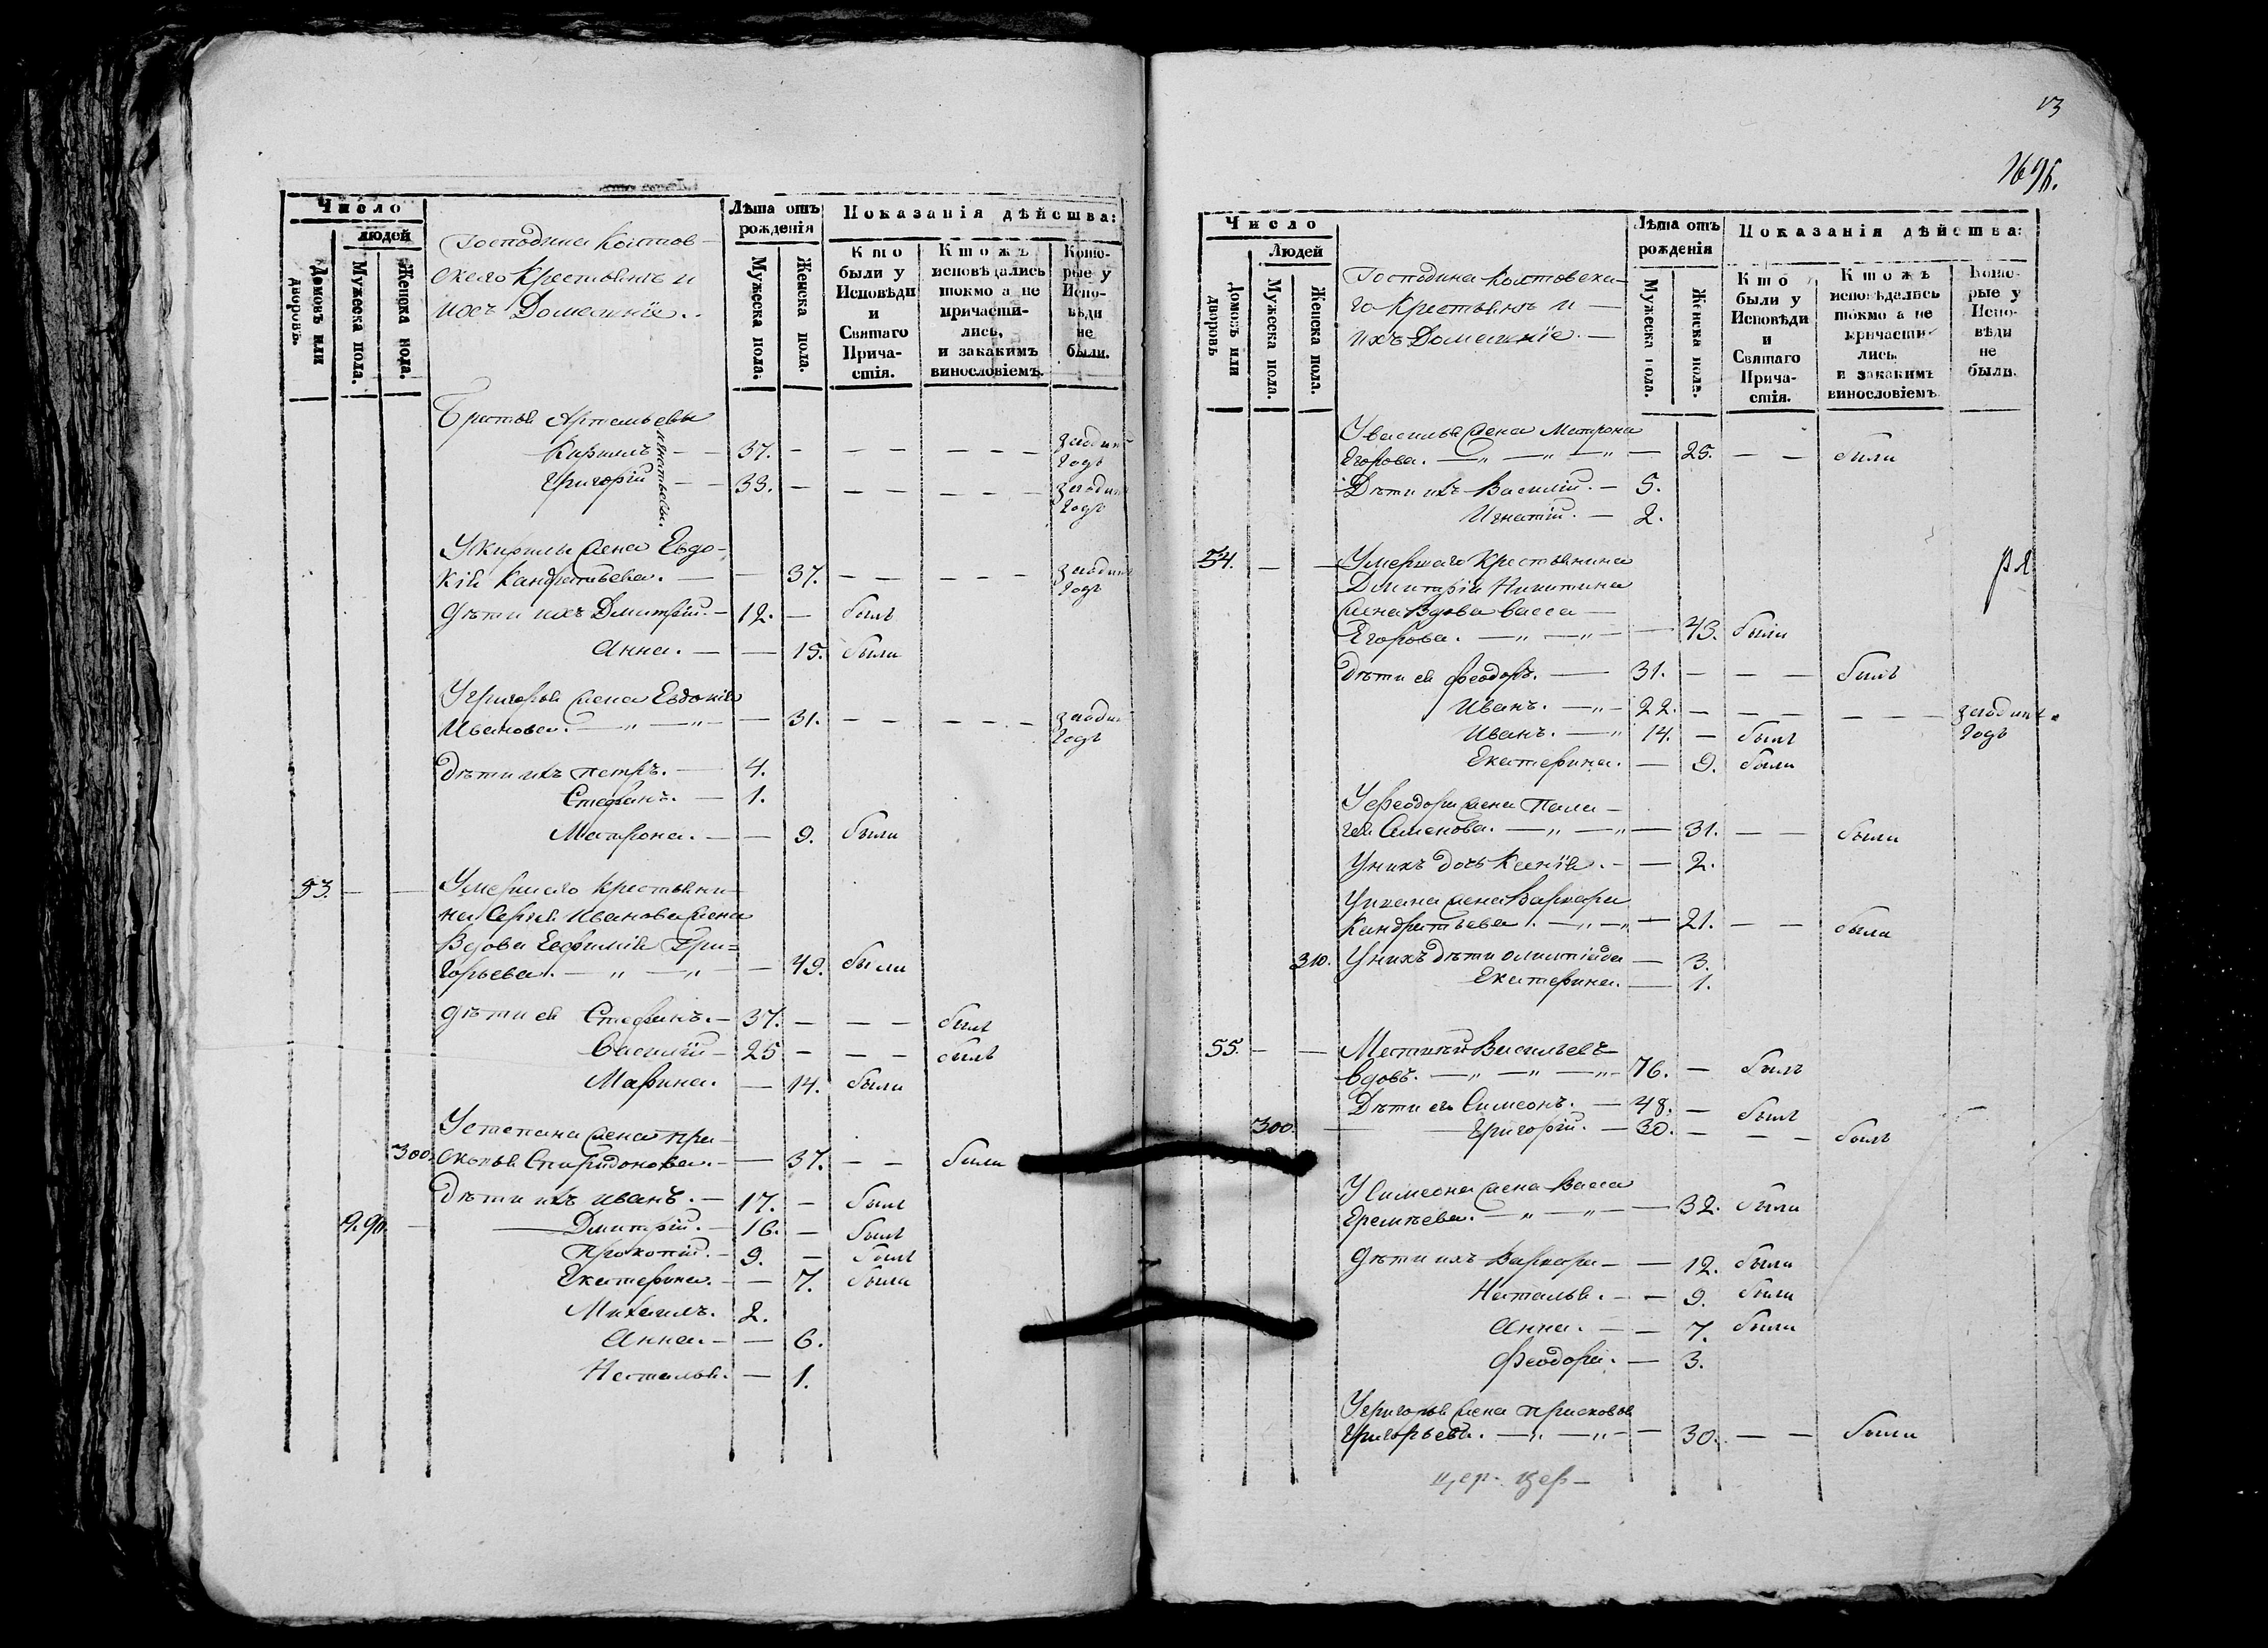 Число
людей
Домовъ или дворовъ.
Мужеска пола.
Женска пола.
Господина Колтов-
скаго крестьянъ и
ихъ Домашніе.
Лѣта отъ рожденія
Мужеска пола.
Женска пола.
Показанія дѣйства:
Кто были у Исповѣди и Святаго Прича-стія.
Ктожъ исповѣдались токмо а не причасти-лись, и закакимъ винословіемъ.
Кото-рые у Испо-вѣди не были.
Братья Артемьевы
Кирилъ — — 37. — — — — — —
годъ
Григорій — — 33. — — — — — —
годъ
У Кирилы жена Евдо-
кія Кандратьева. — — 37. — — — — —
годъ
Дѣти ихъ Дмитрій. — 12. — былъ
Анна. — — 15. была
У Григорья жена Евдокія
Иванова. — „ — „ — — 31. — — — — —
годъ
Дѣти ихъ Петръ. — 4.
Стефанъ. — 1.
Матрона. — — 9. была
53. — — Умершаго крестьяни-
на Сергея Иванова жена
Вдова Евфимія Гри=
горьева. — „ — „ — — 49. была
Дѣти ея Стефанъ. — 37. — — — былъ
Василій — 25 — — — былъ
Марина. — 14. была
У Степана жена Пра-
300. сковья Спиридонова. — — 37. — — была
Дѣти ихъ Иванъ. — 17. — былъ
290. — Дмитрій. — 16. — былъ
Прокопій. — 9. — былъ
Екатерина. — — 7. была
Михаилъ. 2.
Анна. — — 6.
Наталья. — 1.
13
Число
Людей
Домовъ или дворовъ
Мужеска пола.
Женска пола.
Господина Колтовска-
го крестьянъ и —
ихъ Домашніе. —
Лѣта отъ рожденія
Мужеска пола.
Женска пола.
Показанія дѣйства:
Кто были у Исповѣди и Святаго Прича-стія.
Ктожъ исповѣдались токмо а не причасти-лись, и закакимъ винословіемъ
Кото-рые у Испо-вѣди не были.
У Василья жена Матрона
Егорова. — „ — „ — „ — 25. — — была
Дѣти ихъ Василій. — 5.
Игнатій. — 2.
54. — — Умершаго крестьянина
Дмитрія Никитина
жена Вдова Васса —
Егорова. — „ — „ — — 43. была
Дѣти ея Феодоръ. — 31. — — — былъ
Иванъ. — „ — 22. — — — — — —
годъ
Иванъ. — „ 14. — былъ
Екатерина. — 9. была
У Феодора жена Пела-
гея Семенова. — „ — „ — 31. — — была
У нихъ дочь Ксенія. — — 2.
У Ивана жена Варвара
Кандратьева. — „ — „ — 21. — — была
310. У нихъ дѣти Олимпіада — 3.
Екатерина. — 1.
55. — — Васильевъ
вдовъ. — „ — „ — „ — 76. — былъ
Дѣти его Симеонъ. — 48. — былъ
300. — Григорій. — 30. — — — былъ
У Симеона жена Васса
Еремѣева. — „ — „ — — 32. была
Дѣти ихъ Варвара — — 12. была
Наталья. — — 9. была
Анна. — — 7. была
Феодора. — 3.
У Григорья жена Прасковья
Григорьева. — „ — „ — — 30. — — была